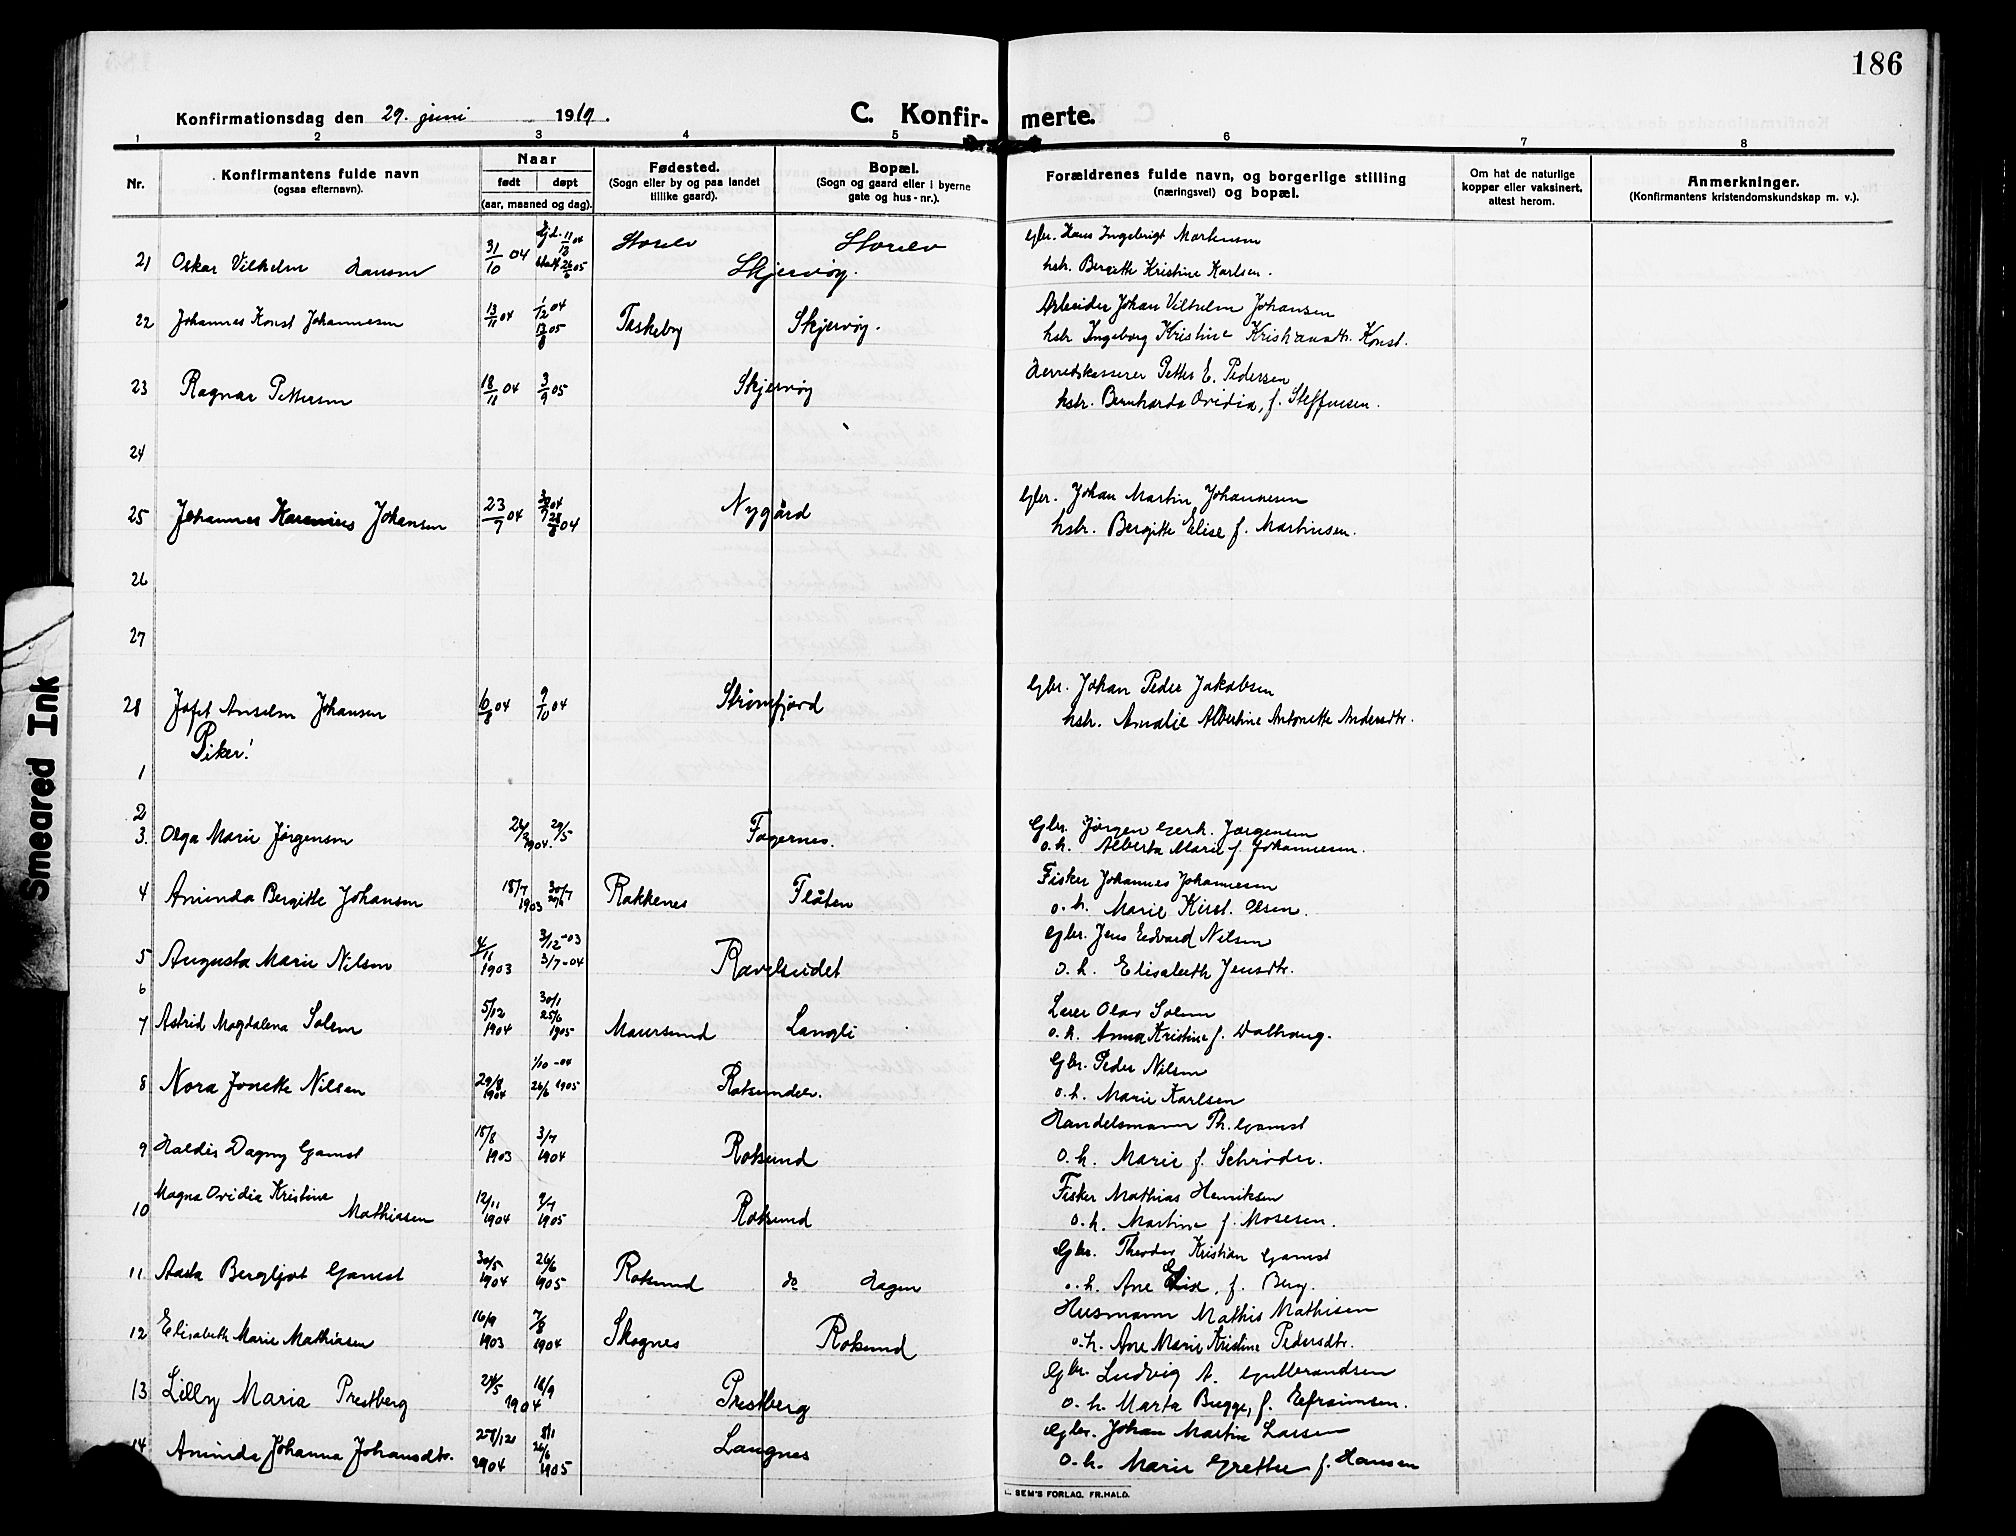 186
Konfirmationsdag den 29. juni 1919.
C. Konfir- merte.
1 2 3 4 5 6 7 8
Nr.
Konfirmantens fulde navn
(ogsaa efternavn).
Naar
født døpt
(aar, maaned og dag).
Fødested.
(Sogn eller by og paa landet
tillike gaard).
Bopæl.
(Sogn og gaard eller i byerne
gate og hus-nr.).
Forældrenes fulde navn, og borgerlige stilling
(næringsvei) og bopæl.
Om hat de naturlige
kopper eller vaksinert,
attest herom.
Anmerkninger.
(Konfirmantens kristendomskundskap m. v.).
21 Oskar Vilhelm Hansen 31/10 04 Storelv Storelv
Skjervøy.
Gbr. Hans Ingebrigt Martensen
hstr. Bergitte Kristine Karlsen.
22 Johannes Konst Johannesen 13/11 04 1/12 04 Taskeby Skjervøy.
Arbeider Johan Vilhelm Johansen
hstr. Ingeborg Kristine Kristiansdtr. Konst.
23 Ragnar Pettersen 18/11 04 3/9 05 Skjervøy
Herredskasserer Petter E. Pedersen
hstr. Bernharda Ovidia, f. Steffensen.
24
25 Johannes Karenius Johansen 23/9 04 Nygård
Gbr. Johan Martin Johannesen
hstr. Bergitte Elise f. Martinsen.
26
27
28 Jafet Anselm Johansen 6/8 04 9/10 04 Strømfjord
Gbr. Johan Peder Jakobsen
hstr. Amalie Albertine Antonette Andersdtr.
Piker!
1
2
3. Olga Marie Jørgensen 1904. 29/5 Fagernes.
Gbr. Jørgen Gerh. Jørgensen
o.h. Alberta Marie f. Johannesen.
4 Aminda Bergitte Johansen 18/7 1903 30/7 Rakkenes Flåten
Fisker Johannes Johannesen
o. h. Marie Kirst. Olsen.
5 Augusta Marie Nilsen 4/11 1903 3/12-03 3/7-04 Ravelseidet
Gbr. Jens Edvard Nilsen
o. h. Elisabeth Jensdtr.
6
7 Astrid Magdalena Solem 5/12 1904 30/1 25/6 1905 Maursund Langli
Lærer Olav Solem
o. h. Anna Kristine f. Dalhaug.
8 Nora Jonette Nilsen 29/8 1904 1/10-04 26/6 1905 Rotsundelv.
Gbr. Peder Nilsen
o. h. Marie Karlsen
9 Haldis Dagny Gamst 18/8 1903 3/7 1904 Rotsund
Handelsmann Th. Gamst
o. h. Marie f. Schrøder.
10 Magna Ovidia Kristine
Mathiasen 12/11 1904 9/7 1905 Rotsund
Fisker Mathias Henriksen
o. h. Martine f. Mosesen.
11 Aasta Bergljot Gamst 30/5 1904 26/6 1905 Rotsund do Hagen
Gbr. Theodor Kristian Gamst
o. h. Ane Elise, f. Berg.
12 Elisabeth Marie Mathiasen 16/9 1903 7/8 1904 Skognes Rotsund
Husmann Mathis Mathisen
o.h. Ane Marie Kristine Pedersdtr.
13 Lilly Maria Prestberg 24/5 18/9 1904 Prestberg
Gbr. Ludvig A. Gulbrandsen
o. h. Marta Bugge, f. Efraimsen.
14 Aminda Johanna Johansdtr. 28/12 1904 8/1 26/6 1905 Langnes
Gbr. Johan Martin Larsen
o. h. Marie Grethe f. Hansen
SEM'S FORLAG. FR.HALD.
Smeared Ink